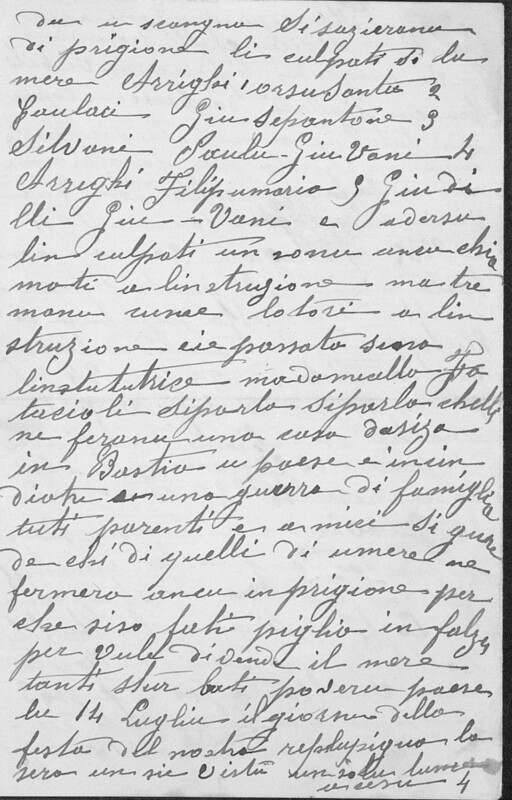 da u scangnu Si sazieranu
di prigione li culpati di lu
mere Arrighi orsusantu 2
Paulaci Giusepantone 3
Silvani Paulu-Giuvani 4
Arrighi Filipumaria 5 Giudi
lli Giu-Vani e adersu
lin culpati un sonu ancu chia
mati a linstruzione ma tre
manu cume lotori a lin
struzione cie passata sura
linstututrice madamealla Fa
tacioli si parla si parla chelli
ne feranu una casa da siza
in Bastia u paese e incin
diatu e una guerra di famiglia
tuti parenti e amici si gure
de chi di quelli di umere ne
fermera ancu in prigione per
che siso fati piglia in falzu
per vule divende il mere
tanti stur bati poveru paese
lu 14 Lugliu il giornu della
festa del nostra replupiqua la
sera un sie vistu un solu lume
acesu 4